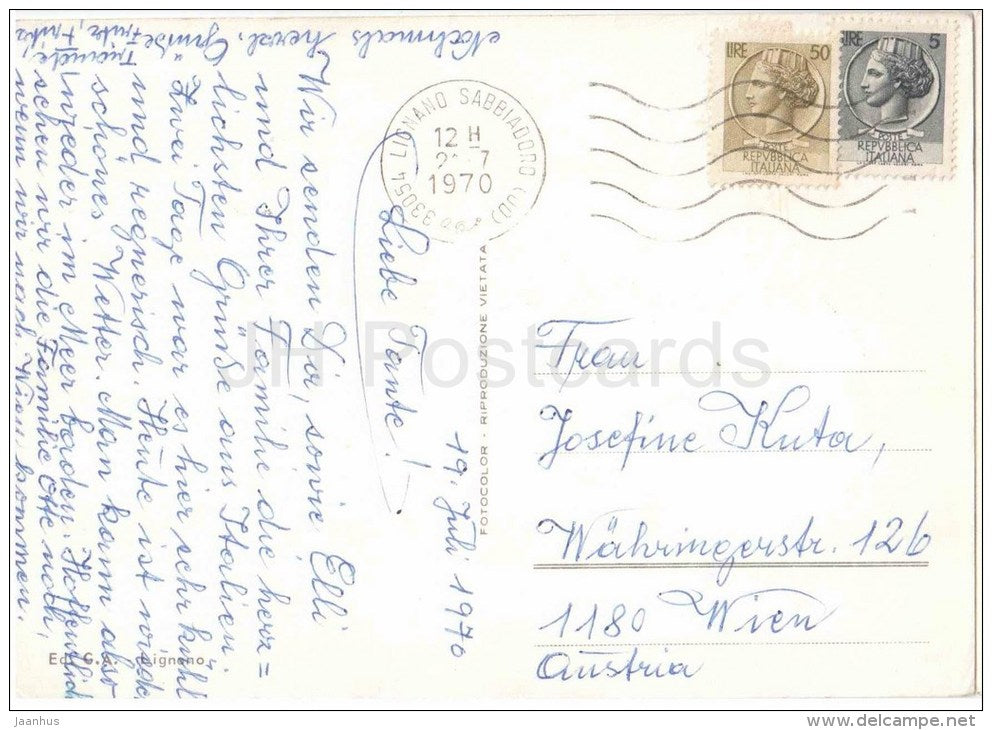 19. Juli 1970
Liebe Tante!
Wir senden Dir, sowie Elli
und Ihrer Familie die herz=
lichsten Grüße aus Italien.
Zwei Tage war es hier sehr kühl
und regnerisch. Heute ist wieder
schönes Wetter. Man kann also
wieder im Meer baden. Hoffentlich
sehen wir die Familie Otte noch,
wenn wir nach Wien kommen.
Nochmals herzl. Grüße
FOTOCOLOR - RIPRODUZIONE VIETATA
Ed. G.A. - Lignano
33054 LIGNANO SABBIADORO (UD)
12 H
7
1970
LIRE 50
POSTE
REPVBBLICA
ITALIANA
LIRE 5
POSTE
REPVBBLICA
ITALIANA
Frau
Josefine Kuta,
Währingerstr. 126
1180 Wien
Austria
JH Postcards
Jaanhus
www.delcampe.net